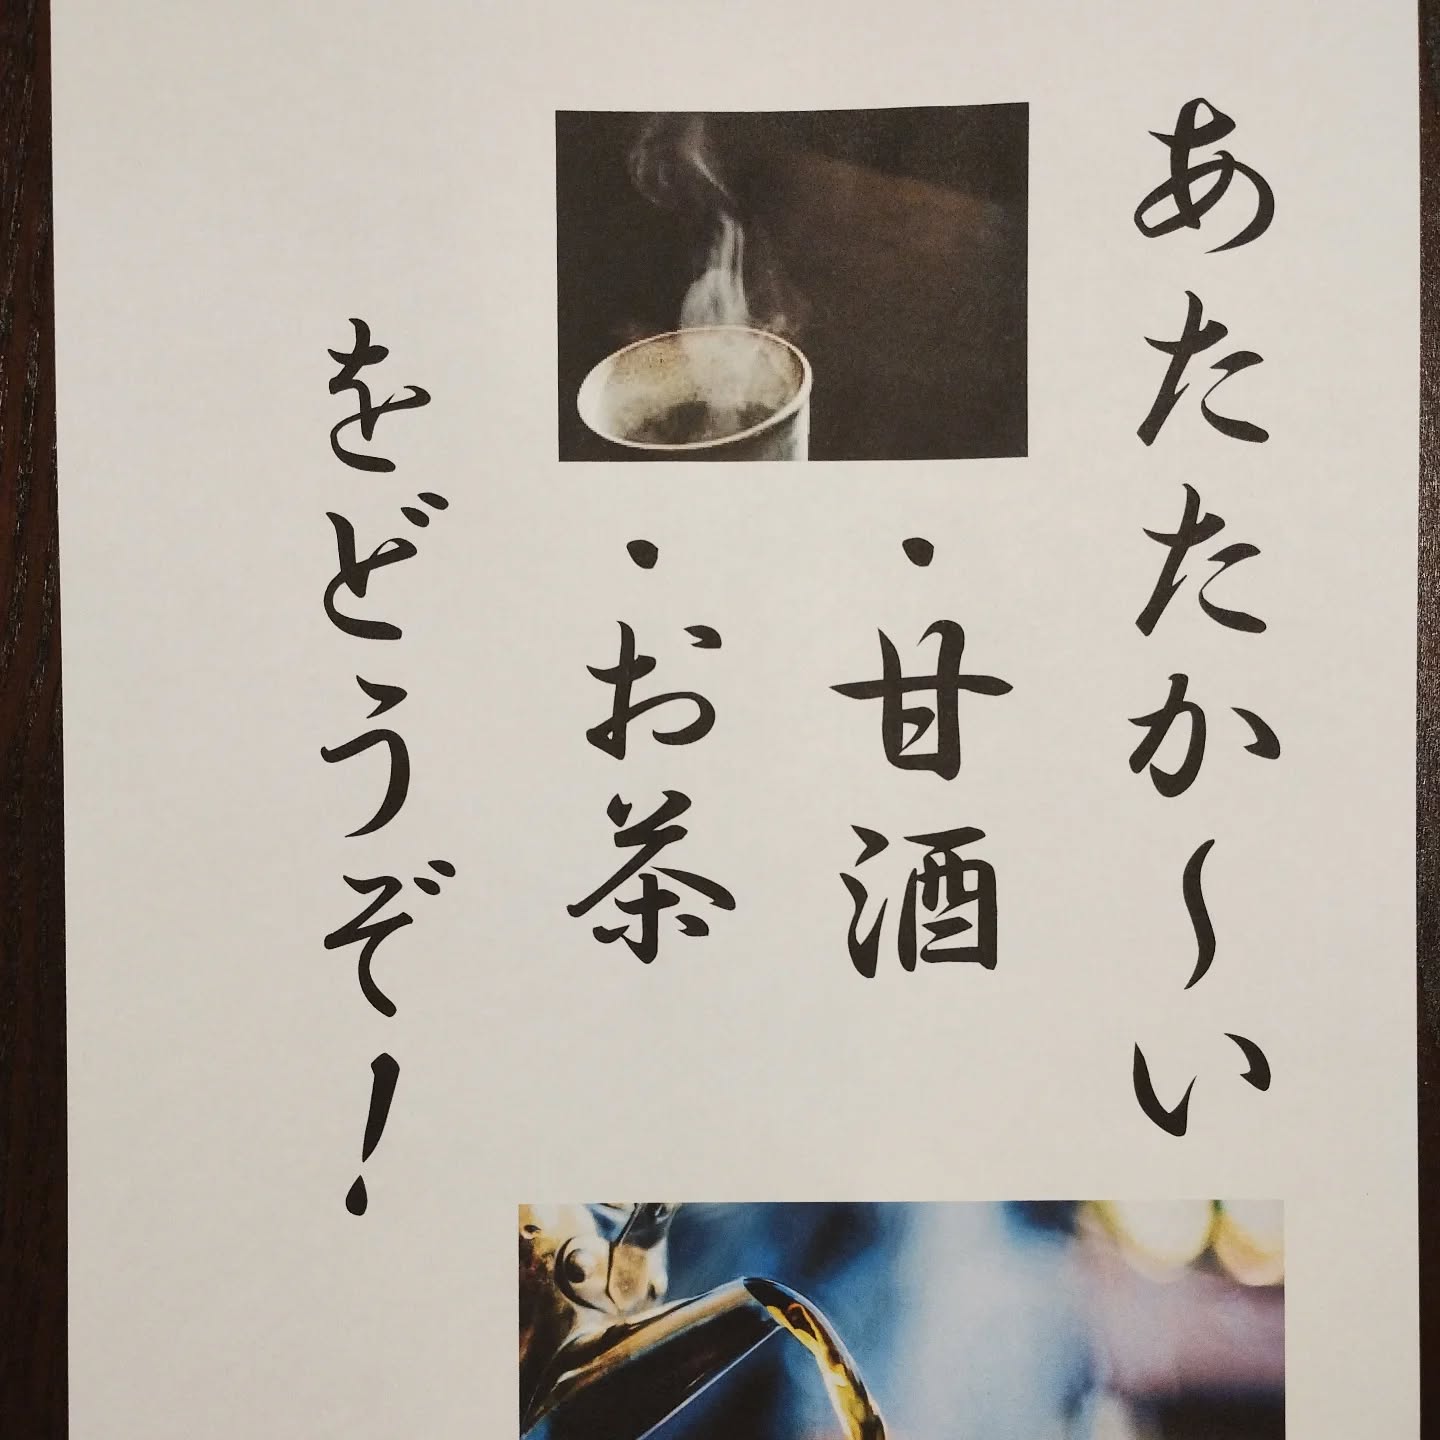 あたたか〜い
・甘酒
・お茶
をどうぞ！